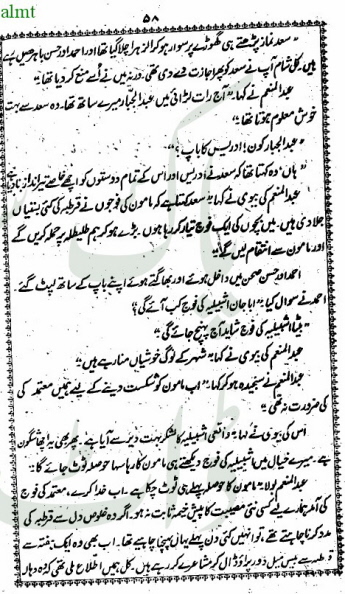 almt
۵۸
"سعد نماز پڑھتے ہی گھوڑے پر سوار ہو کر الزہرا چلا گیا تھا اور احمد اور حسن باہر کھیل رہے
ہیں۔ کل شام آپ نے سعد کو بھی اجازت دے دی تھی۔ ورنہ میں نے اُسے منع کر دیا تھا۔"
عبدالمنعم نے کہا۔ "آج رات لڑائی میں عبدالجبار میرے ساتھ تھا۔ وہ سعد سے بہت
خوش معلوم ہوتا تھا۔"
"عبدالجبار کون! ادریس کا باپ؟"
"ہاں وہ کہتا تھا کہ سعد نے ادریس اور اس کے تمام دوستوں کو اچھے خاصے تیر انداز بنا دیا
عبدالمنعم کی بیوی نے کہا "سعد کہتا ہے کہ مامون کی فوجوں نے قرطبہ کی کئی بستیاں
جلا دی ہیں۔ میں بچوں کی ایک فوج تیار کر رہا ہوں۔ بڑے ہو کر ہم طلیطلہ پر حملہ کریں گے
اور مامون سے انتقام لیں گے!"
احمد اور حسن صحن میں داخل ہوئے اور بھاگتے ہوئے اپنے باپ کے ساتھ لپٹ گئے۔
احمد نے سوال کیا "ابا جان اشبیلیہ کی فوج کب آئے گی؟"
"بیٹا اشبیلیہ کی فوج شاید آج پہنچ جائے گی۔"
عبدالمنعم کی بیوی نے کہا "شہر کے لوگ خوشیاں منا رہے ہیں۔"
عبدالمنعم نے سنجیدہ ہو کر کہا۔ "اب مامون کو شکست دینے کے لیے ہمیں معتمد کی
کی ضرورت نہ تھی۔"
اس کی بیوی نے کہا۔ "واقعی اشبیلیہ کا لشکر بہت دیر سے آیا ہے۔ پھر بھی یہ اچھا شگون
ہے۔ میرے خیال میں اشبیلیہ کی فوج دیکھتے ہی مامون کا رہا سہا حوصلہ ٹوٹ جائے گا۔"
عبدالمنعم بولا۔ "مامون کا حوصلہ پہلے ہی ٹوٹ چکا ہے۔ اب خدا کرے، معتمد کی فوج
کی آمد ہمارے لیے کسی نئی مصیبت کا پیش خیمہ ثابت نہ ہو۔ اگر وہ خلوص دل سے قرطبہ کی
مدد کرنا چاہتے تھے، تو انہیں کئی دن پہلے یہاں پہنچنا چاہیے تھا۔ اب بھی وہ ایک ہفتہ سے
قرطبہ سے بیس میل دور پڑاؤ ڈال کر مشاعرے کر رہے ہیں۔ کل ہمیں اطلاع ملی تھی کہ وہ دہاں